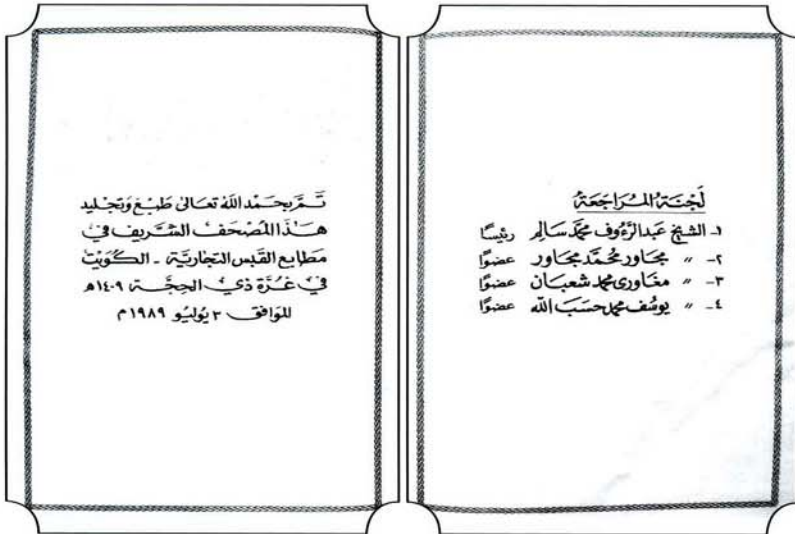 لَجْنَة المُرَاجَعَة
١- الشيخ عبدالرءوف محمد سالم رئيسًا
٢- " مجاور محمد مجاور عضوًا
٣- " مغاورى محمد شعبان عضوًا
٤- " يوسف محمد حسب الله عضوًا
تَمَّ بحَمْد اللَّه تعَالى طَبْع وَتجليد
هَذا المُصْحَف الشَّريف في
مطابع القبس التجاريَّة - الكُوَيْت
في غُرَّة ذي الحِجَّة ١٤٠٩هـ
المُوَافق ٣ يُوليو ١٩٨٩م